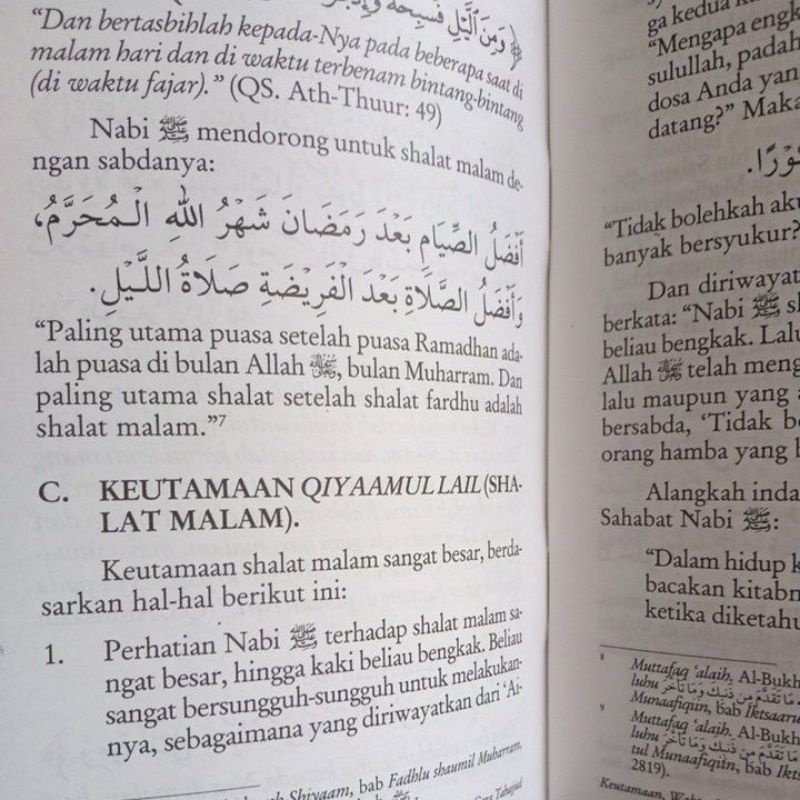 ﴿ وَمِنَ الَّيْلِ فَسَبِّحْهُ
“Dan bertasbihlah kepada-Nya pada beberapa saat di
malam hari dan di waktu terbenam bintang-bintang
(di waktu fajar).” (QS. Ath-Thuur: 49)
Nabi ﷺ mendorong untuk shalat malam de-
ngan sabdanya:
أَفْضَلُ الصِّيَامِ بَعْدَ رَمَضَانَ شَهْرُ اللهِ الْمُحَرَّمُ،
وَأَفْضَلُ الصَّلَاةِ بَعْدَ الْفَرِيْضَةِ صَلَاةُ اللَّيْلِ.
“Paling utama puasa setelah puasa Ramadhan ada-
lah puasa di bulan Allah ﷻ, bulan Muharram. Dan
paling utama shalat setelah shalat fardhu adalah
shalat malam.”7
C. KEUTAMAAN QIYAAMUL LAIL (SHA-
LAT MALAM).
Keutamaan shalat malam sangat besar, berda-
sarkan hal-hal berikut ini:
1. Perhatian Nabi ﷺ terhadap shalat malam sa-
ngat besar, hingga kaki beliau bengkak. Beliau
sangat bersungguh-sungguh untuk melakukan-
nya, sebagaimana yang diriwayatkan dari ‘Ai-
Shiyaam, bab Fadhlu shaumil Muharram,
ga kedua
“Mengapa
sulullah,
dosa Anda
datang?”
“Tidak bolehkah
banyak bersyukur?
Dan
berkata: “Nabi ﷺ
beliau bengkak.
Allah ﷻ telah
lalu maupun yang
bersabda, ‘Tidak
orang hamba yang
Alangkah
Sahabat Nabi ﷺ:
“Dalam hidup
bacakan
ketika
8 Muttafaq ‘alaih,
luhu مَا تَقَدَّمَ مِنْ ذَنْبِكَ وَمَا تَأَخَّرَ
Munaafiqiin, bab
9 Muttafaq ‘alaih.
luhu مَا تَقَدَّمَ مِنْ ذَنْبِكَ وَمَا تَأَخَّرَ
tul Munaafiqiin, bab
2819).
Keutamaan,